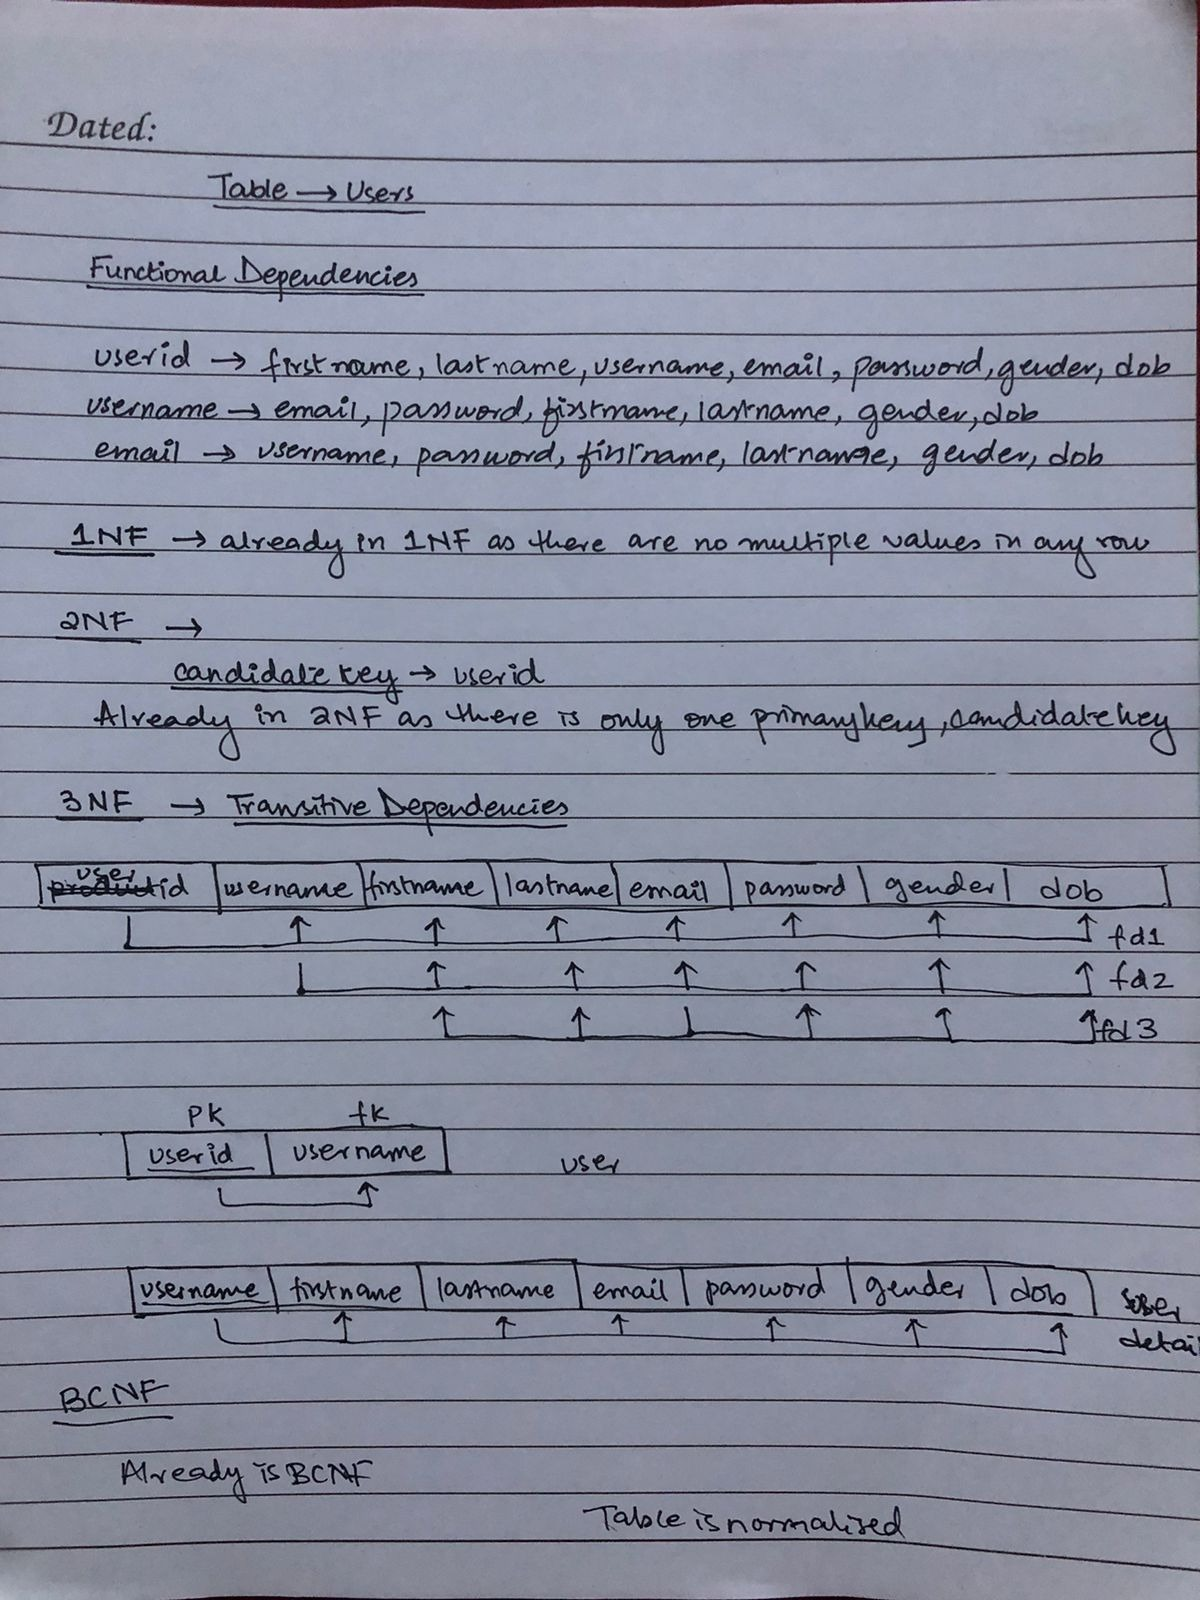 Dated:
Table → Users
Functional Dependencies
userid → firstname, lastname, username, email, password, gender, dob
username → email, password, firstname, lastname, gender, dob
email → username, password, firstname, lastname, gender, dob
1NF → already in 1NF as there are no multiple values in any row
2NF →
candidate key → userid
Already in 2NF as there is only one primary key, candidate key
3NF → Transitive Dependencies
userid username firstname lastname email password gender dob
fd1
fd2
fd3
PK fk
userid username user
username firstname lastname email password gender dob user
detail
BCNF
Already is BCNF
Table is normalised